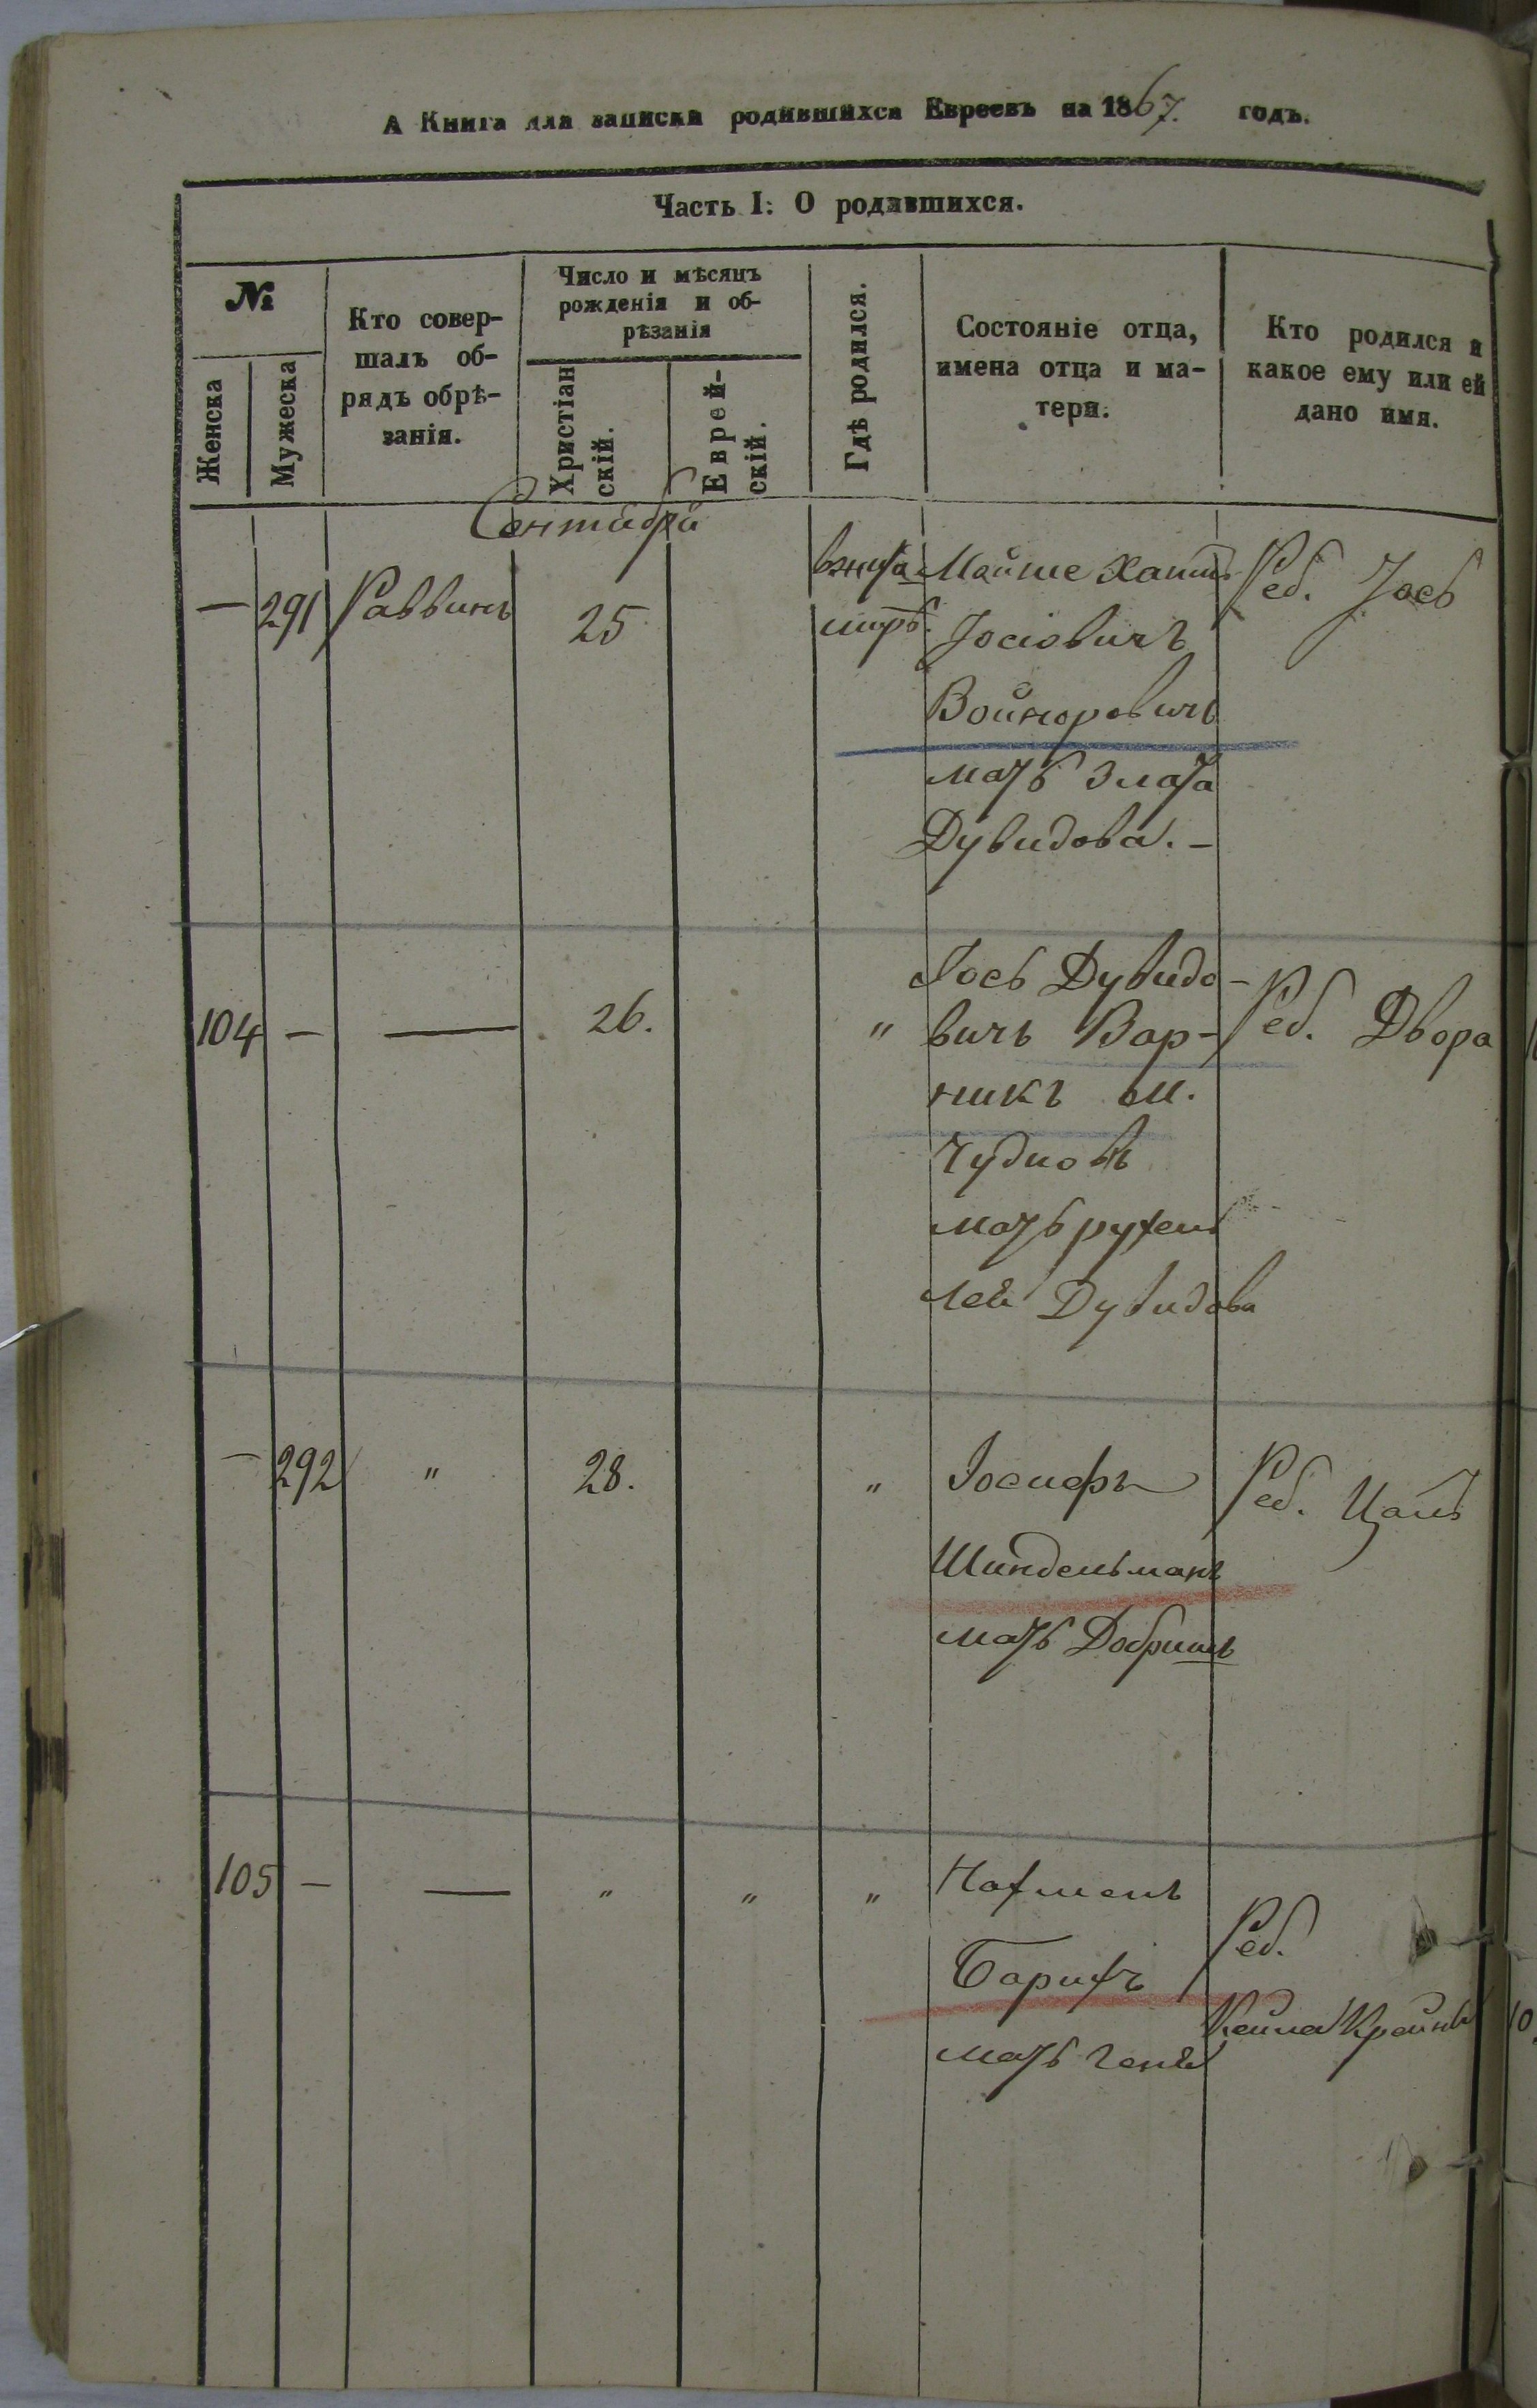 А Книга для записки родившихся Евреевъ на 1867. годъ.
Часть I: О родившихся.
№
Женска
Мужеска
Кто совер-
шалъ об-
рядъ обрѣ-
занія.
Число и мѣсяцъ
рожденія и об-
рѣзанія
Христіан
скій.
Еврей-
скій.
Гдѣ родился.
Состояніе отца,
имена отца и ма-
тери.
Кто родился и
какое ему или ей
дано имя.
Сентября
— 291 Раввинъ 25
Мойше
Іосіовичъ
мать Злата
Дувидова. —
Реб. Іось
104 — — 26. "
Іось Дувидо-
вичъ Вар-
никъ м.
Чудновъ
мать рухель
лея Дувидова
Реб. Двора
— 292 " 28. "
Іосифъ
Шиндельманъ
мать Добришъ
Реб.
105 — — " " "
Нахманъ
мать Геня
Реб.
Кейла Крейна